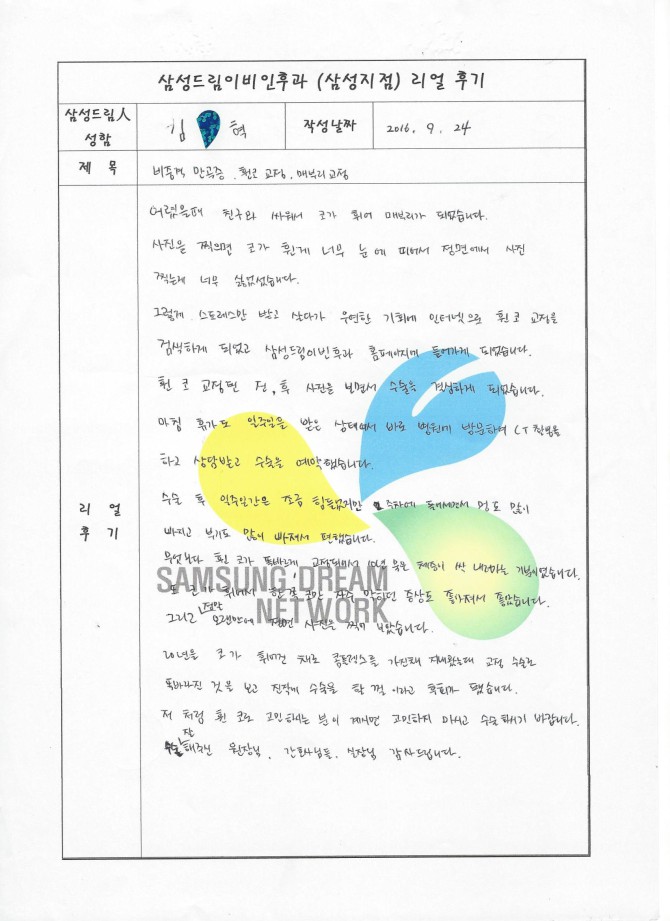 삼성드림이비인후과 (삼성지점) 리얼 후기
삼성드림人 성함
김 혁
작성날짜
2016. 9. 24
제 목
비중격 만곡증, 휜코 교정, 매부리 교정
리 얼 후 기
어렸을때 친구와 싸워서 코가 휘어 매부리가 되었습니다.
사진을 찍으면 코가 휜게 너무 눈에 띄어서 정면에서 사진
찍는게 너무 싫었었습니다.
그렇게 스트레스만 받고 살다가 우연한 기회에 인터넷으로 휜 코 교정을
검색하게 되었고 삼성드림이비인후과 홈페이지에 들어가게 되었습니다.
휜 코 교정전 전, 후 사진을 보면서 수술을 결심하게 되었습니다.
마침 휴가도 일주일을 받은 상태여서 바로 병원에 방문하여 CT 촬영을
하고 상담받고 수술을 예약했습니다.
수술 후 일주일간은 조금 힘들었지만 2주차에 들어서면서 멍도 많이
빠지고 붓기도 많이 빠져서 편했습니다.
무엇보다 휜 코가 똑바르게 교정되어서 10년 묵은 체증이 싹 내려가는 기분이었습니다.
또 코가 휘어서 한쪽 코만 자주 막히던 증상도 좋아져서 좋았습니다.
그리고 정말 오랜만에 정면 사진을 찍어 보았습니다.
20년을 코가 휘어진 채로 콤플렉스를 가진채 지내왔는데 교정 수술로
똑바라진 것을 보고 진작에 수술을 할 껄 이라고 후회가 됐습니다.
저 처럼 휜 코로 고민하는 분이 계시면 고민하지 마시고 수술 하시기 바랍니다.
수술 잘 해주신 원장님, 간호사님들, 실장님 감사드립니다.
SAMSUNG DREAM
NETWORK